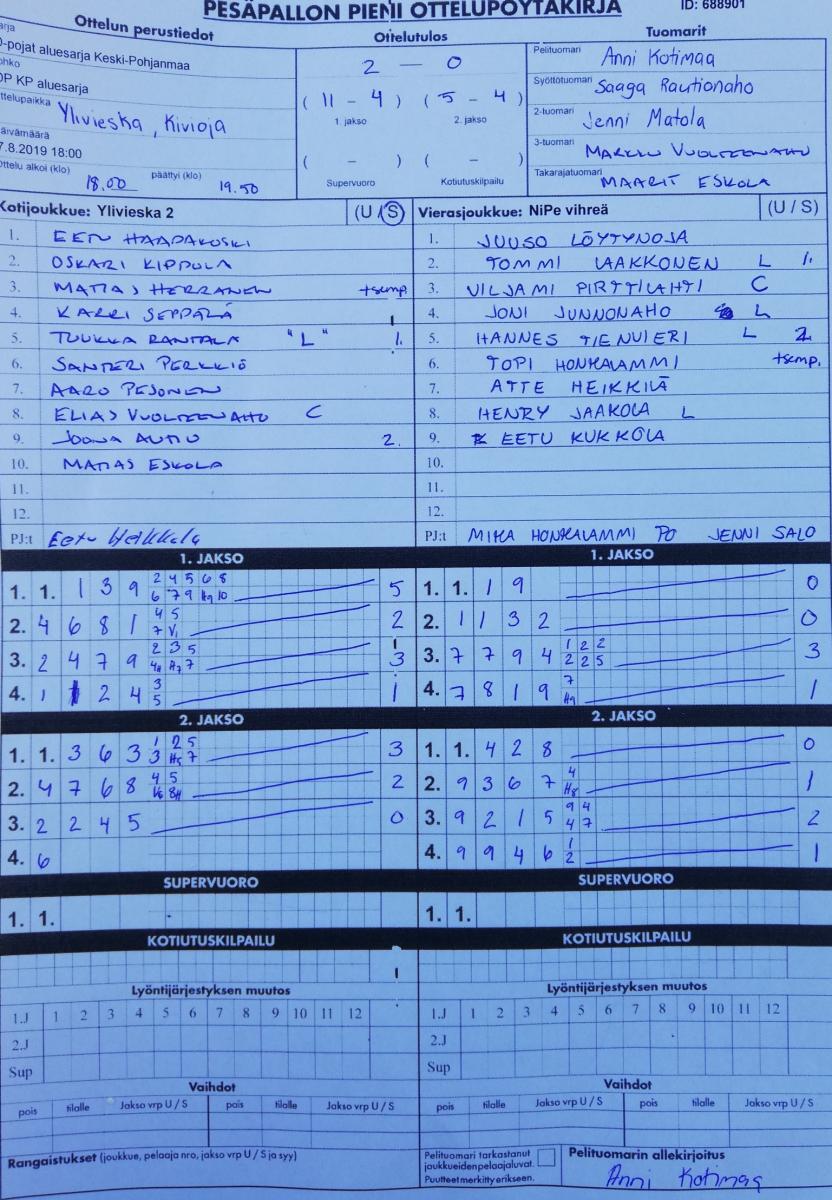 PESÄPALLON PIENI OTTELUPÖYTÄKIRJA
ID: 688901
Ottelun perustiedot
-pojat aluesarja Keski-Pohjanmaa
OP KP aluesarja
Ylivieska, Kivioja
7.8.2019 18:00
Ottelu alkoi (klo) 18.00 päättyi (klo) 19.50
Ottelutulos
2 — 0
( 11 - 4 ) ( 5 - 4 )
1. jakso 2. jakso
( - ) ( - )
Supervuoro Kotiutuskilpailu
Tuomarit
Pelituomari Anni Kotimaa
Syöttötuomari Saaga Rautionaho
2-tuomari Jenni Matola
3-tuomari MARKKU VUOLTEENAHO
Takarajatuomari MAARIT ESKOLA
Kotijoukkue: Ylivieska 2 (U / S)
1. EETU HAAPAKOSKI
2. OSKARI KIPPOLA
3. MATIAS HERRANEN +tsemp.
4. KARRI SEPPÄLÄ
5. TUUKKA RANTALA "L" 1.
6. SANTERI PERKKIÖ
7. AARO PESONEN
8. ELIAS VUOLTEENAHO C
9. JOONA AUTIO 2.
10. MATIAS ESKOLA
11.
12.
PJ:t Eetu Heikkilä
Vierasjoukkue: NiPe vihreä (U / S)
1. JUUSO LÖYTYNOJA
2. TOMMI LAAKKONEN L 1.
3. VILJAMI PIRTTILAHTI C
4. JONI JUNNONAHO L
5. HANNES TIENVIERI L 2.
6. TOPI HONKALAMMI +tsemp.
7. ATTE HEIKKILÄ
8. HENRY JAAKOLA L
9. EETU KUKKOLA
10.
11.
12.
PJ:t MIKA HONKALAMMI PO JENNI SALO
1. JAKSO
1. 1. 1 3 9 2 4 5 6 8 5
6 7 9 H9 10
2. 4 6 8 1 4 5 2
7 V1
3. 2 4 7 9 2 3 5 3
4H H7 7
4. 1 2 4 3 1
5
1. JAKSO
1. 1. 1 9 0
2. 1 1 3 2 0
3. 7 7 9 4 1 2 2 3
2 2 5
4. 7 8 1 9 7 1
H9
2. JAKSO
1. 1. 3 6 3 1 2 5 3
3 H5 7
2. 4 7 6 8 4 5 2
V6 8H
3. 2 2 4 5 0
4. 6
2. JAKSO
1. 1. 4 2 8 0
2. 9 3 6 7 4 1
H8
3. 9 2 1 5 9 4 2
4 7
4. 9 9 4 6 1 1
2
SUPERVUORO
1. 1.
SUPERVUORO
1. 1.
KOTIUTUSKILPAILU
KOTIUTUSKILPAILU
Lyöntijärjestyksen muutos
1.J 1 2 3 4 5 6 7 8 9 10 11 12
2.J
Sup
Lyöntijärjestyksen muutos
1.J 1 2 3 4 5 6 7 8 9 10 11 12
2.J
Sup
Vaihdot
pois tilalle Jakso vrp U / S pois tilalle Jakso vrp U / S
Vaihdot
pois tilalle Jakso vrp U / S pois tilalle Jakso vrp U / S
Rangaistukset (joukkue, pelaaja nro, jakso vrp U / S ja syy)
Pelituomari tarkastanut
joukkueiden pelaajaluvat.
Puutteet merkitty erikseen.
Pelituomarin allekirjoitus
Anni Kotimaa